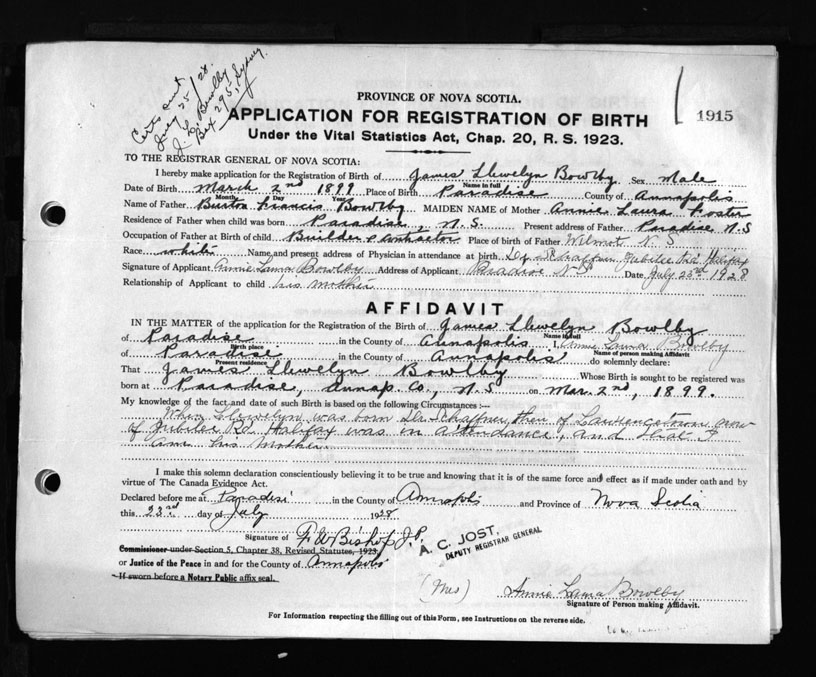 Certs sent
July 25/28.
J. L. Bowlby
Box 295, Sydney
PROVINCE OF NOVA SCOTIA.
1915
APPLICATION FOR REGISTRATION OF BIRTH
Under the Vital Statistics Act, Chap. 20, R. S. 1923.
TO THE REGISTRAR GENERAL OF NOVA SCOTIA:
I hereby make application for the Registration of Birth of James Llewelyn Bowlby Sex Male
Name in full
Date of Birth March 2nd 1899 Place of Birth Paradise County of Annapolis
Month Day Year
Name of Father Burton Francis Bowlby MAIDEN NAME of Mother Annie Laura Foster
Residence of Father when child was born Paradise, N.S. Present address of Father Paradise, N.S
Occupation of Father at Birth of child Builder & Contractor Place of birth of Father Wilmot N.S
Race white Name, and present address of Physician in attendance at birth Dr Schaffner, Jubilee Rd. Halifax
Signature of Applicant Annie Laura Bowlby Address of Applicant Paradise N.S. Date July 23rd 1928
Relationship of Applicant to child his mother
AFFIDAVIT
IN THE MATTER of the application for the Registration of the Birth of James Llewelyn Bowlby
Name in full
of Paradise in the County of Annapolis I, Annie Laura Bowlby
Birth place Name of person making Affidavit
of Paradise in the County of Annapolis do solemnly declare:
Present residence
That James Llewelyn Bowlby Whose Birth is sought to be registered was
born at Paradise, Annap. Co., N.S on Mar. 2nd, 1899.
My knowledge of the fact and date of such Birth is based on the following Circumstances:—
When Llewelyn was born Dr Schaffner, then of Lawrencetown now
of Jubilee Rd. Halifax was in attendance, and that I
am his Mother.
I make this solemn declaration conscientiously believing it to be true and knowing that it is of the same force and effect as if made under oath and by
virtue of The Canada Evidence Act.
Declared before me at Paradise in the County of Annapolis and Province of Nova Scotia
this 23rd day of July 1928.
Signature of F. W. Bishop J.P.
A. C. JOST,
DEPUTY REGISTRAR GENERAL
Commissioner under Section 5, Chapter 38, Revised Statutes, 1923,
or Justice of the Peace in and for the County of Annapolis
If sworn before a Notary Public affix seal.
(Mrs) Annie Laura Bowlby
Signature of Person making Affidavit.
For Information respecting the filling out of this Form, see Instructions on the reverse side.